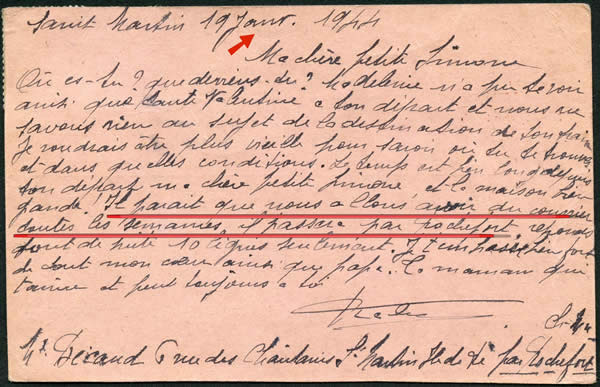 Saint Martin 19 Janv. 1944
Ma chère petite Simone
Où es-tu? que deviens-tu? Madeleine n'a pu te voir
ainsi que tante Valentine à ton départ et nous ne
savons rien au sujet de la destination de ton train
Je voudrais être plus vieille pour savoir où tu te trouves
et dans quelles conditions. Le temps est bien long depuis
ton départ ma chère petite Simone, et la maison bien
grande! Il parait que nous allons avoir du courrier
toutes les semaines, il passera par Rochefort. reponds
dont de suite 10 lignes seulement. Je t'embrasse bien fort
de tout mon cœur ainsi que papa. Ta maman qui
t'aime et peut toujours à toi
Mr Béraud 6 rue des St Martin Ile de Ré par Rochefort